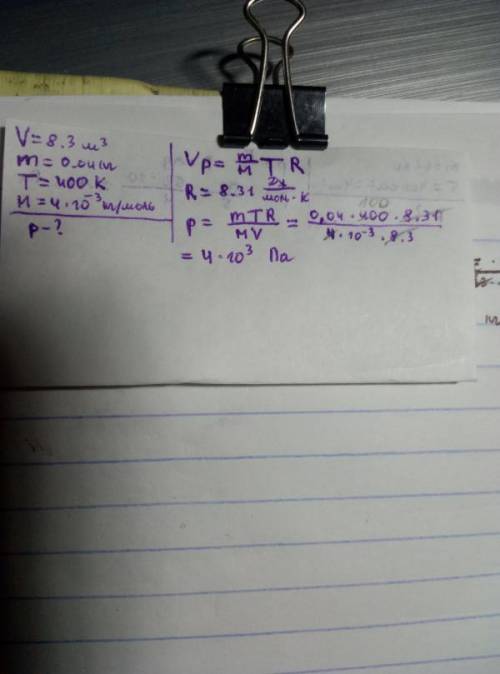 V = 8.3 м³
m = 0.04 кг
T = 400 K
M = 4·10⁻³ кг/моль
p - ?
Vp = m/M T R
R = 8.31 Дж/моль·К
p = mTR/MV = 0,04·400·8.31/4·10⁻³·8.3
= 4·10³ Па